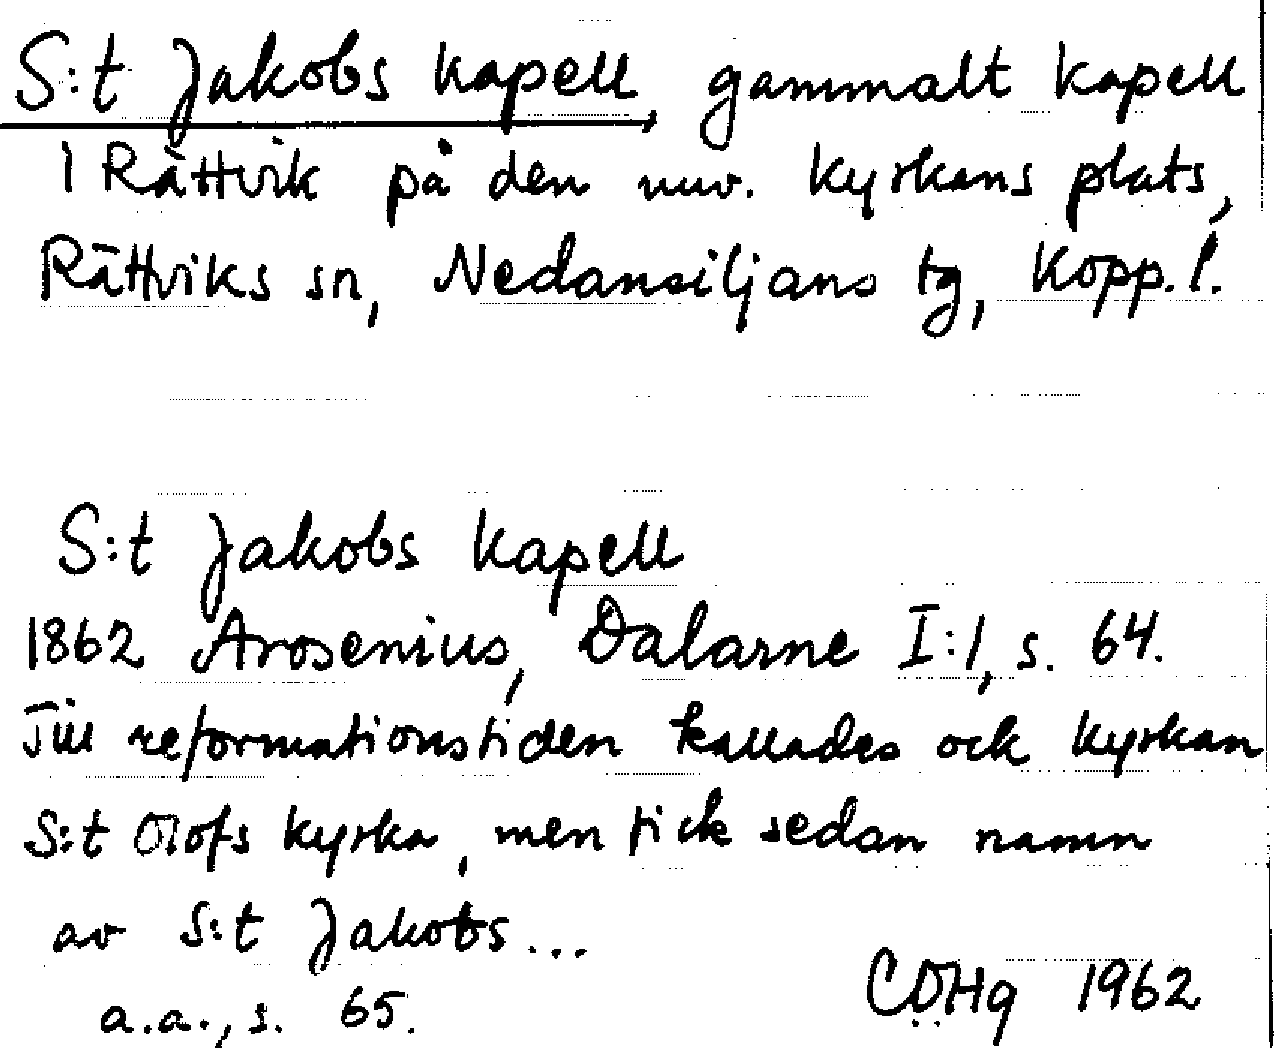 S:t Jakobs Kapell, gammalt kapell
i Rättvik på den nuv. kyrkans plats,
Rättviks sn, Nedansiljans tg, Kopp. l.
S:t Jakobs Kapell
1862 Arosenius, Dalarne I:1, s. 64.
Till reformationstiden kallades ock kyrkan
S:t Olofs kyrka, men fick sedan namn
av S:t Jakobs...
a.a., s. 65.
CÖHg 1962